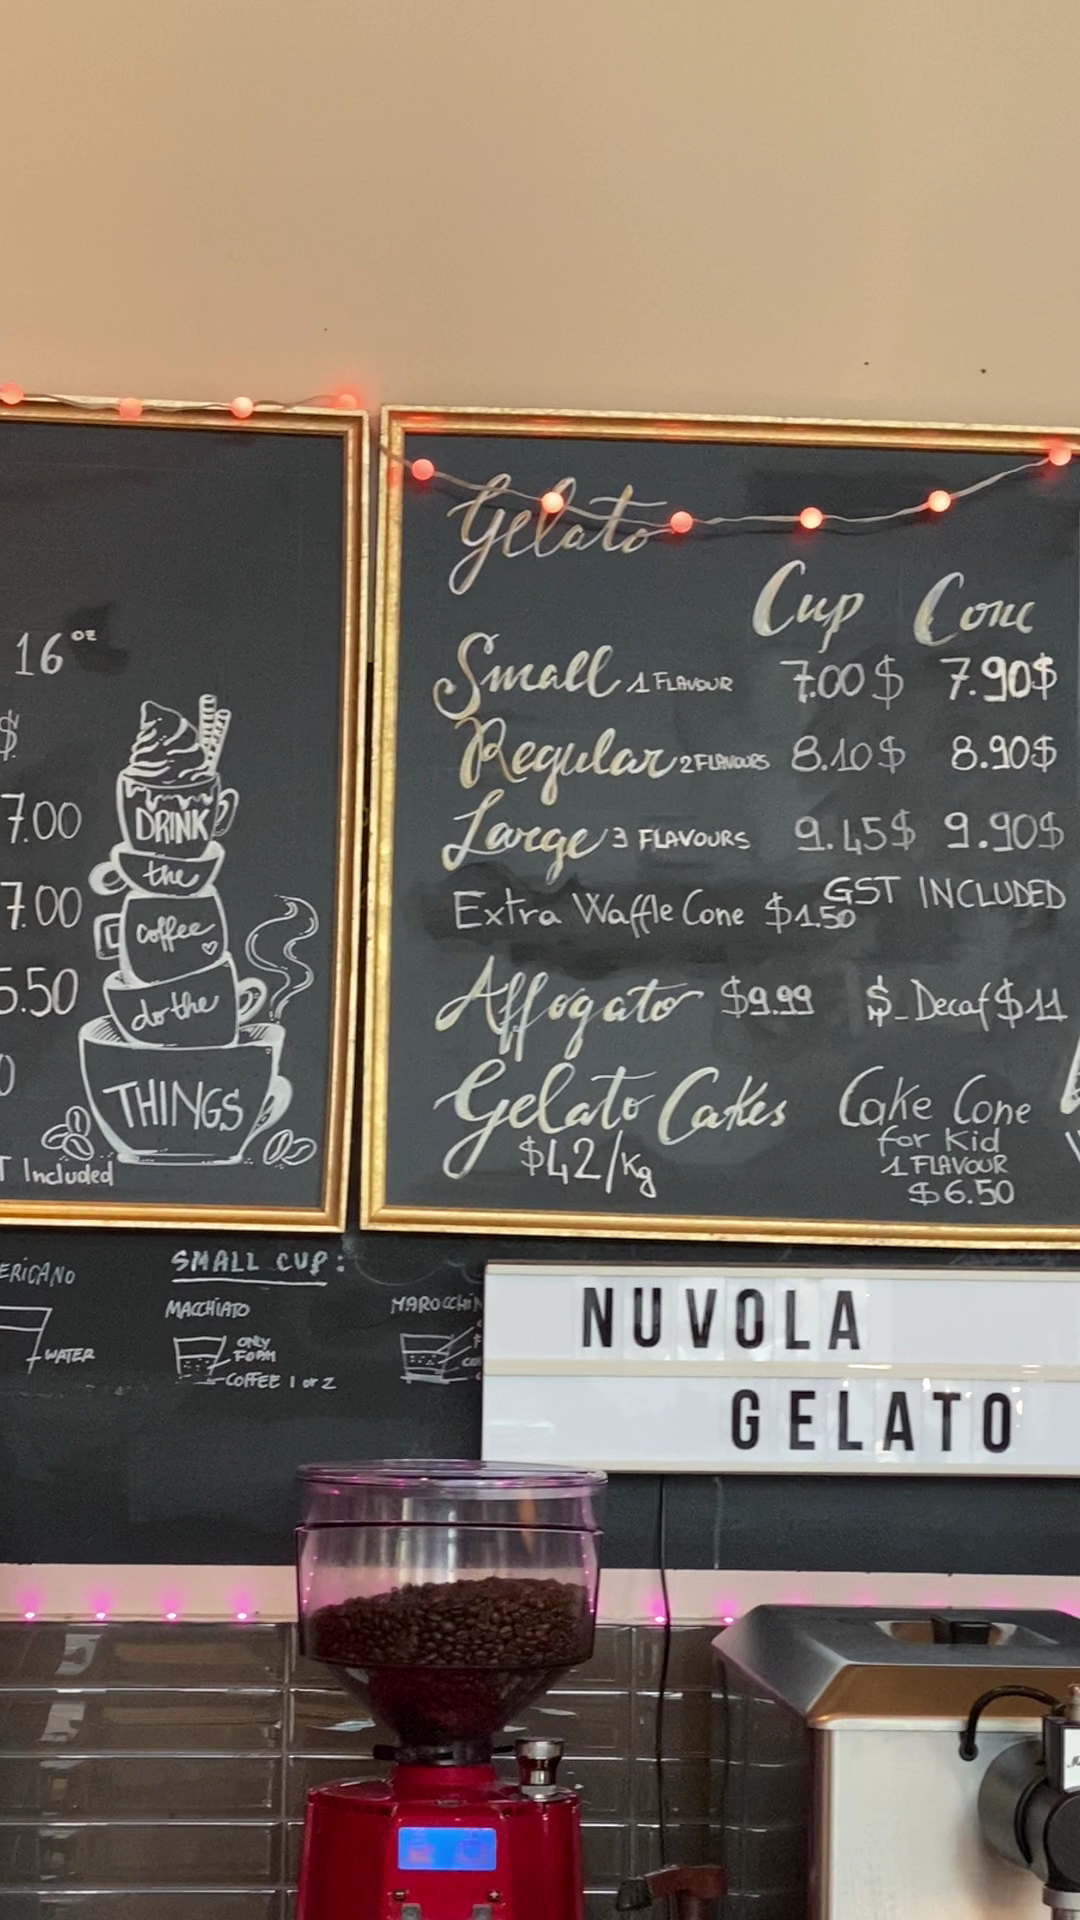 16 oz
$
7.00
7.00
5.50
0
DRINK
the
coffee
do the
THINGS
T Included
Gelato
Cup Cone
Small 1 FLAVOUR 7.00$ 7.90$
Regular 2 FLAVOURS 8.10$ 8.90$
Large 3 FLAVOURS 9.45$ 9.90$
GST INCLUDED
Extra Waffle Cone $1.50
Affogato $9.99 $_Decaf $11
Gelato Cakes
$42/Kg
Cake Cone
for Kid
1 FLAVOUR
$6.50
ERICANO
WATER
SMALL CUP:
MACCHIATO
ONLY
FOAM
COFFEE 1 or 2
MAROCCHIN
NUVOLA
GELATO